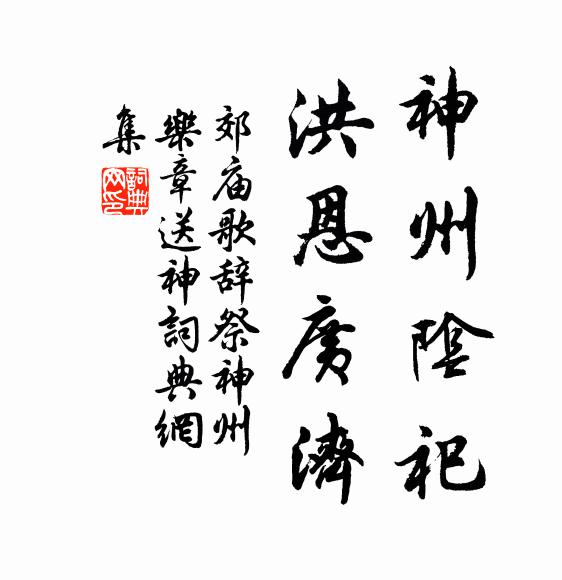 神州陰祀
洪恩廣濟
郊庙歌辞祭神州
樂章送神詞典網
集
詞典
网印